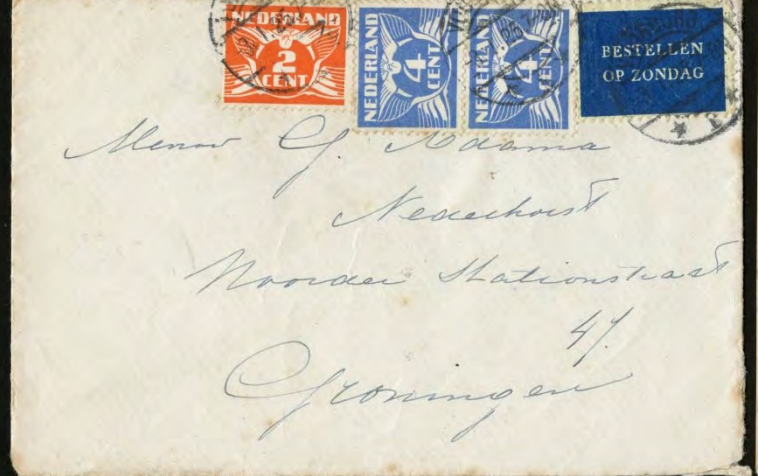 NEDERLAND
2
CENT
NEDERLAND
4
CENT
NEDERLAND
4
CENT
BESTELLEN
OP ZONDAG
Mevrouw G. Adama
Nederhorst
Noorder Stationstraat
47.
Groningen